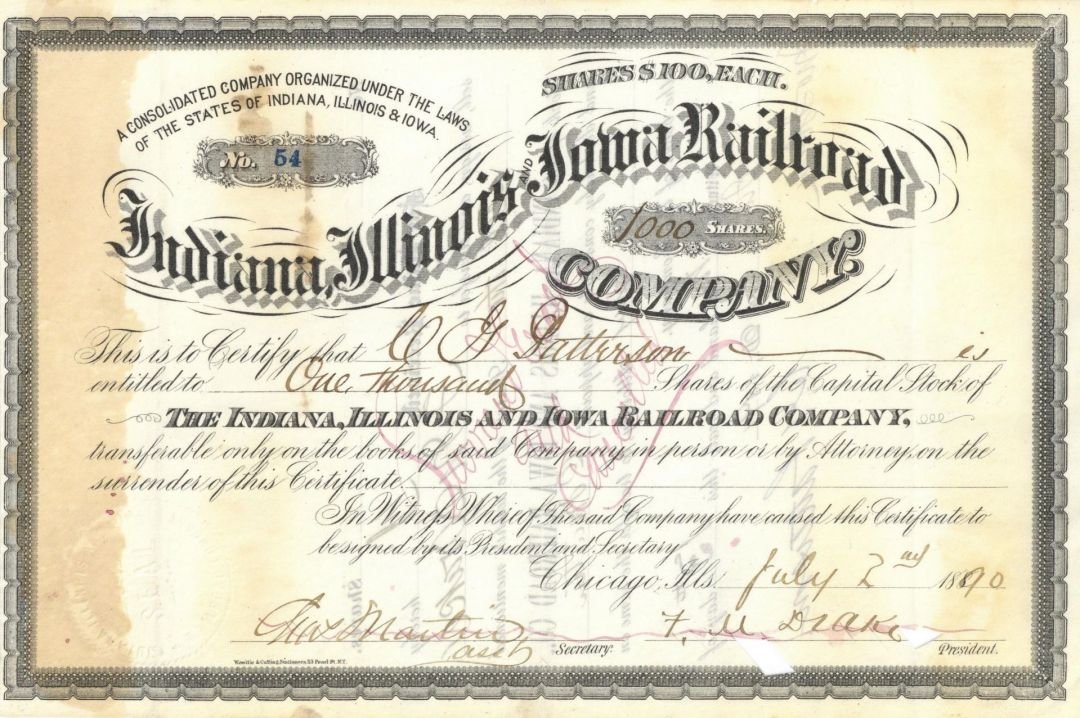 A CONSOLIDATED COMPANY ORGANIZED UNDER THE LAWS
OF THE STATES OF INDIANA, ILLINOIS & IOWA.
SHARES $100, EACH.
No. 54
Indiana, Illinois AND Iowa Railroad
1000 SHARES.
COMPANY.
This is to Certify that C G Patterson is
entitled to One thousand Shares of the Capital Stock of
THE INDIANA, ILLINOIS AND IOWA RAILROAD COMPANY,
transferable only on the books of said Company in person or by Attorney, on the
surrender of this Certificate.
In Witness Whereof The said Company have caused this Certificate to
be signed by its President and Secretary
Chicago, Ills. July 2nd 1890
Chas Martin F. M. Drake
Asst Secretary. President.